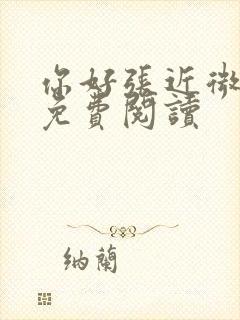 你好張近微
免費閱讀
納蘭